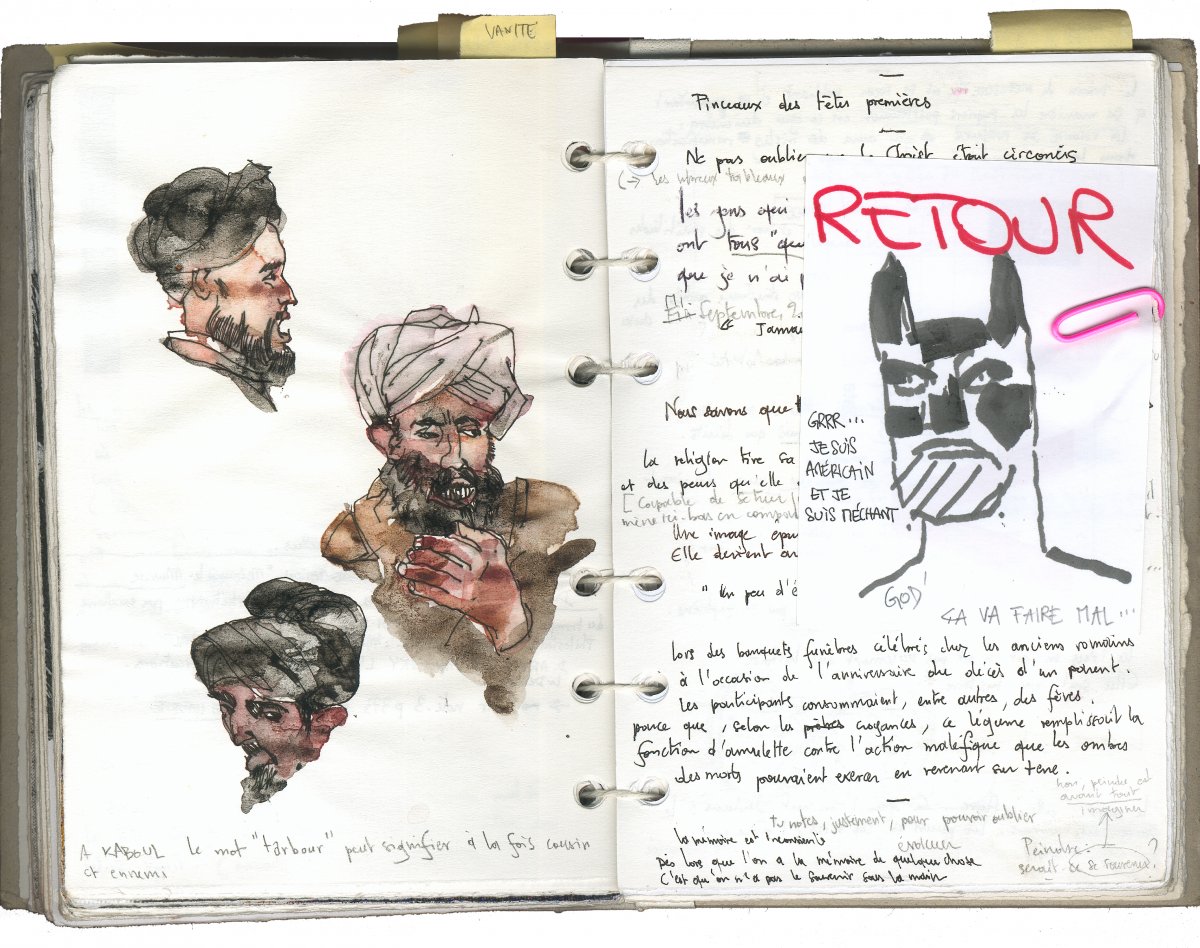 VANITÉ
A KABOUL le mot "tarbour" peut signifier à la fois cousin
et ennemi
Pinceaux des têtes premières
Ne pas oublier que le Christ était circoncis
(→ les
les gens qui
ont tous "qu
que je n'ai p
Septembre, 2
Janv
Nous savons que
La religion tire sa
et des peurs qu'elle
[Coupable de
même ici-bas en
Une image
Elle devient
" Un peu d'é
RETOUR
GRRR...
JE SUIS
AMÉRICAIN
ET JE
SUIS MÉCHANT
GOD'
ÇA VA FAIRE MAL...
Lors des banquets funèbres célébrés chez les anciens romains
à l'occasion de l'anniversaire du décès d'un parent.
Les participants consommaient, entre autres, des fèves.
parce que, selon les croyances, ce légume remplissait la
fonction d'amulette contre l'action maléfique que les ombres
des morts pouvaient exercer en revenant sur terre.
tu notes, justement, pour pouvoir oublier
évacuer
La mémoire est inconsciente
Dès lors que l'on a la mémoire de quelque chose
C'est qu'on n'a pas le souvenir sous la main
non, peindre est
avant tout
imaginer
Peindre: ?
serait ce se